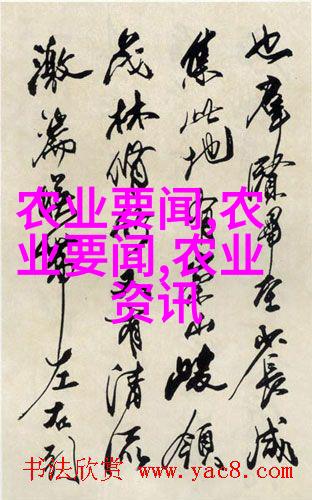 也羣賢畢至少長咸
集此地有崇山峻領
茂林脩竹又有清流
激湍暎帶左右引
农业要闻,农
业要闻,农业
资讯
书法欣赏 www.yac8.com